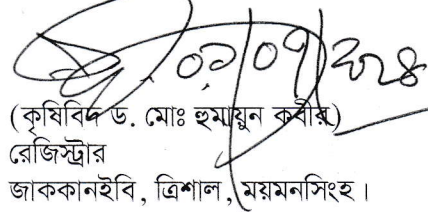 ০১/০৭/২০২৪
(কৃষিবিদ ড. মোঃ হুমায়ুন কবীর)
রেজিস্ট্রার
জাককানইবি, ত্রিশাল, ময়মনসিংহ।